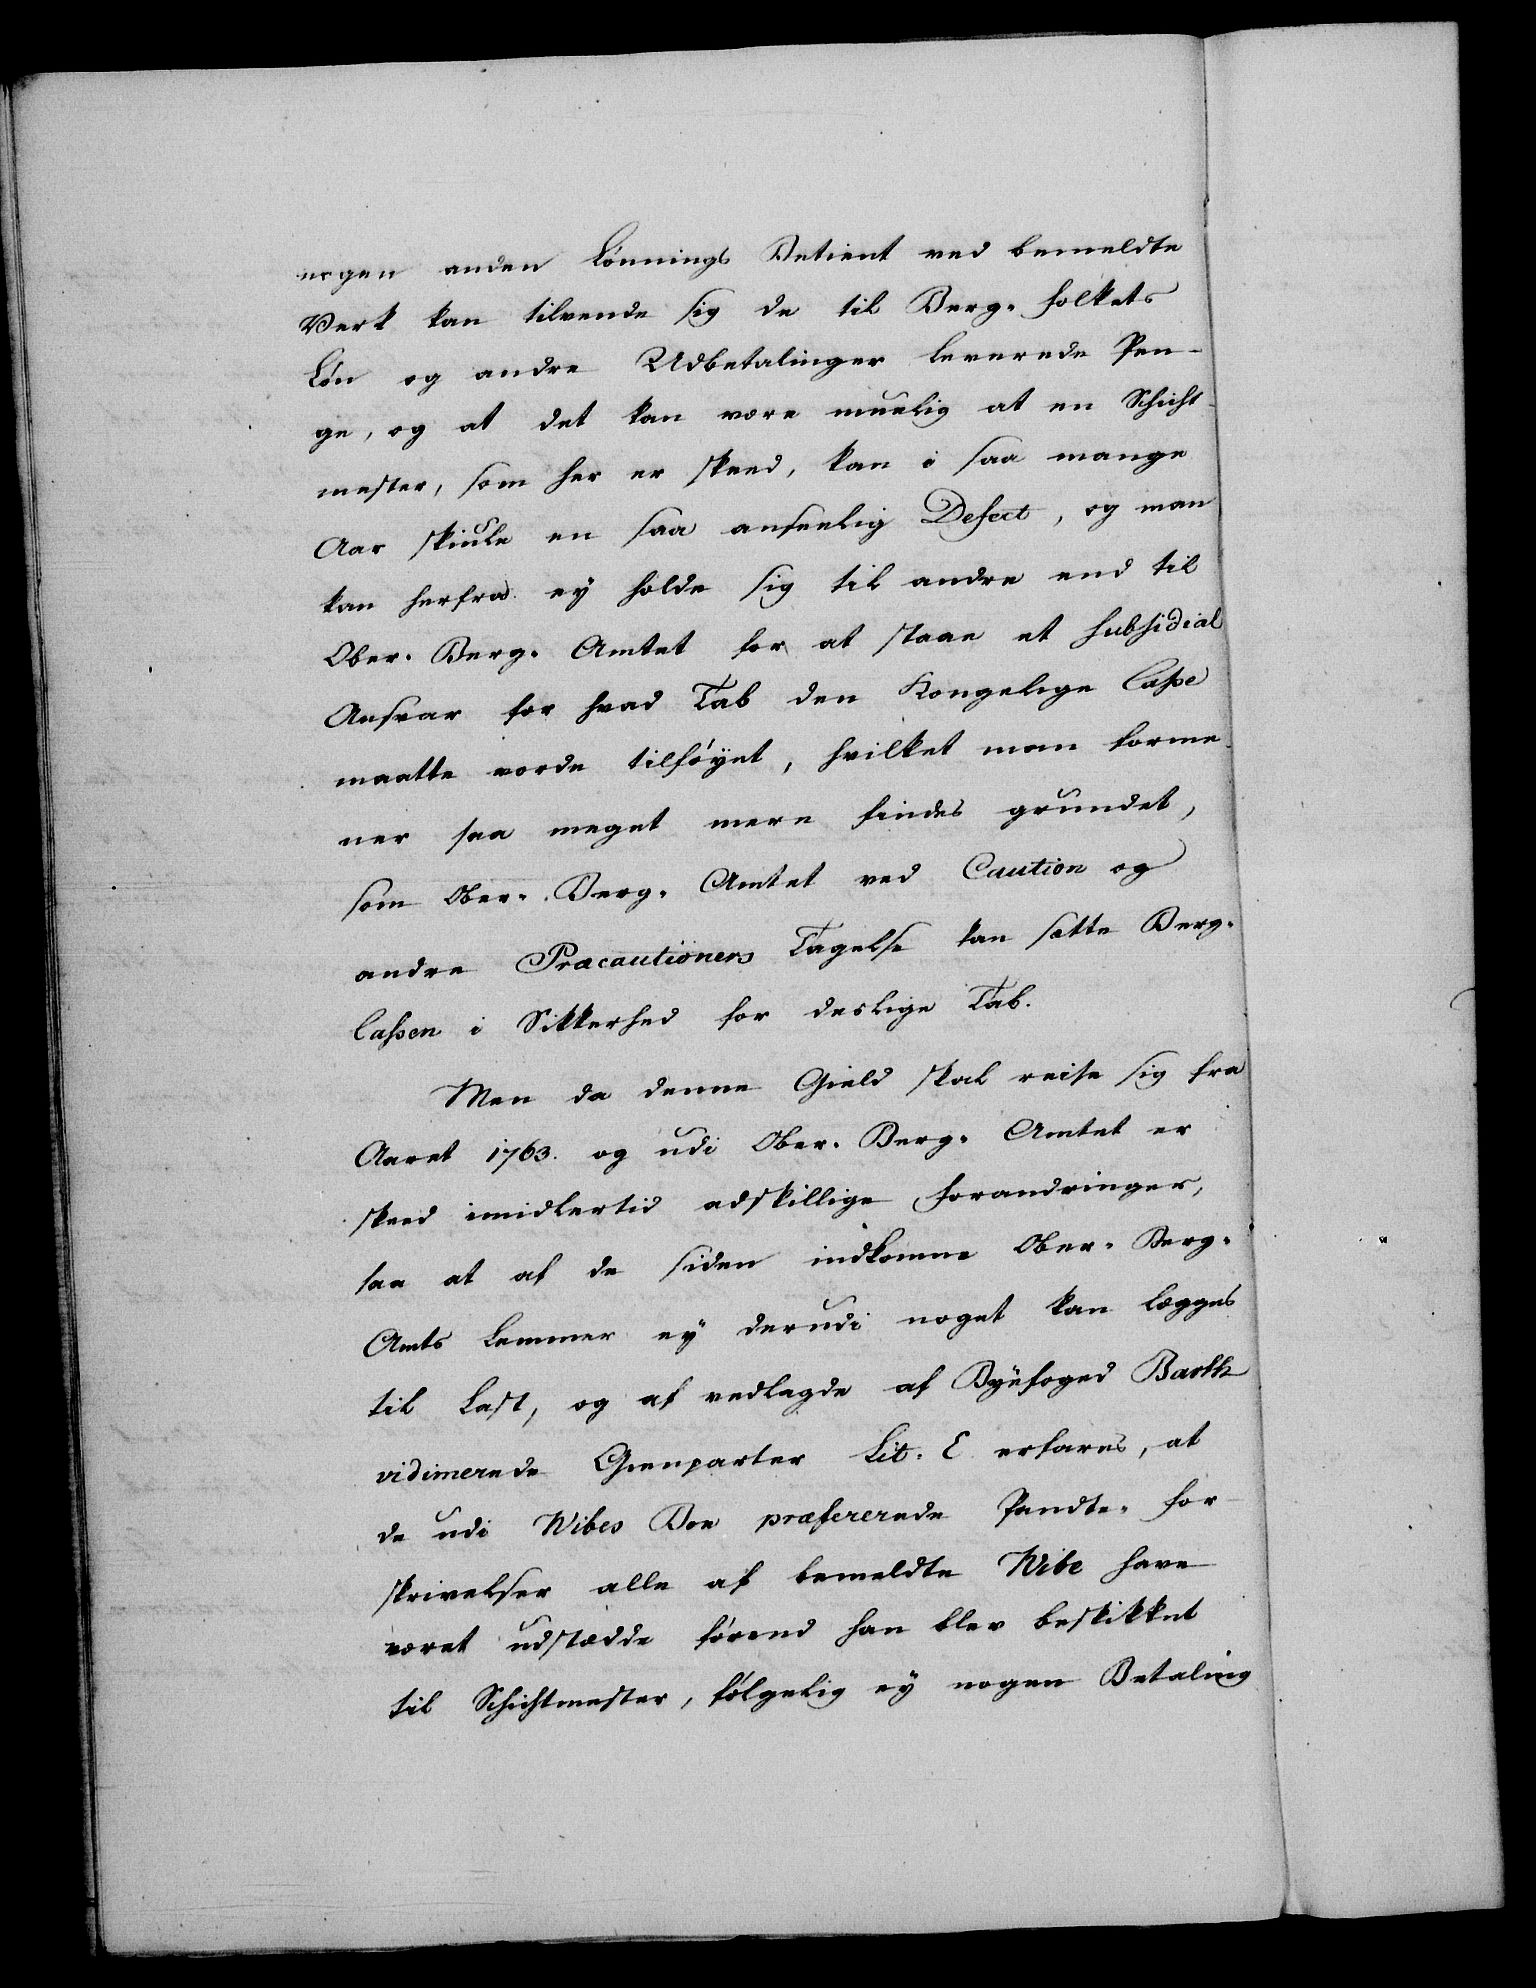 nogen anden Lønnings Betient ved bemeldte
Verk kan tilvende sig de til Berg-folkets
Løn og andre Udbetalinger leverede Pen-
ge, og at det kan være muelig at en Schicht-
mester, som her er skeed, kan i saa mange
Aar skiule en saa anseelig Defect, og man
kan herfra ey holde sig til andre end til
Ober-Berg-Amtet for at staae et subsidial
Ansvar for hvad Tab den Kongelige Casse
maatte vorde tilføyet, hvilket man forme-
ner saa meget mere findes grundet,
som Ober-Berg-Amtet ved Caution og
andre Præcautioners Tagelse kan sætte Berg-
Cassen i Sikkerhed for deslige Tab.
Men da denne Gield skal reise sig fra
Aaret 1763. og udi Ober-Berg-Amtet er
skeed imidlertid adskillige Forandringer,
saa at af de siden indkomne Ober-Berg-
Amts Lemmer ey derudi noget kan lægges
til Last, og af vedlagde af Byefoged Barth
vidimerede Gienparter Lit. E erfares, at
de udi Wibes Boe præfererede Pandte-for-
skrivelser alle af bemeldte Wibe have
været udstædde førend han blev beskikket
til Schichtmester, følgelig ey nogen Betaling